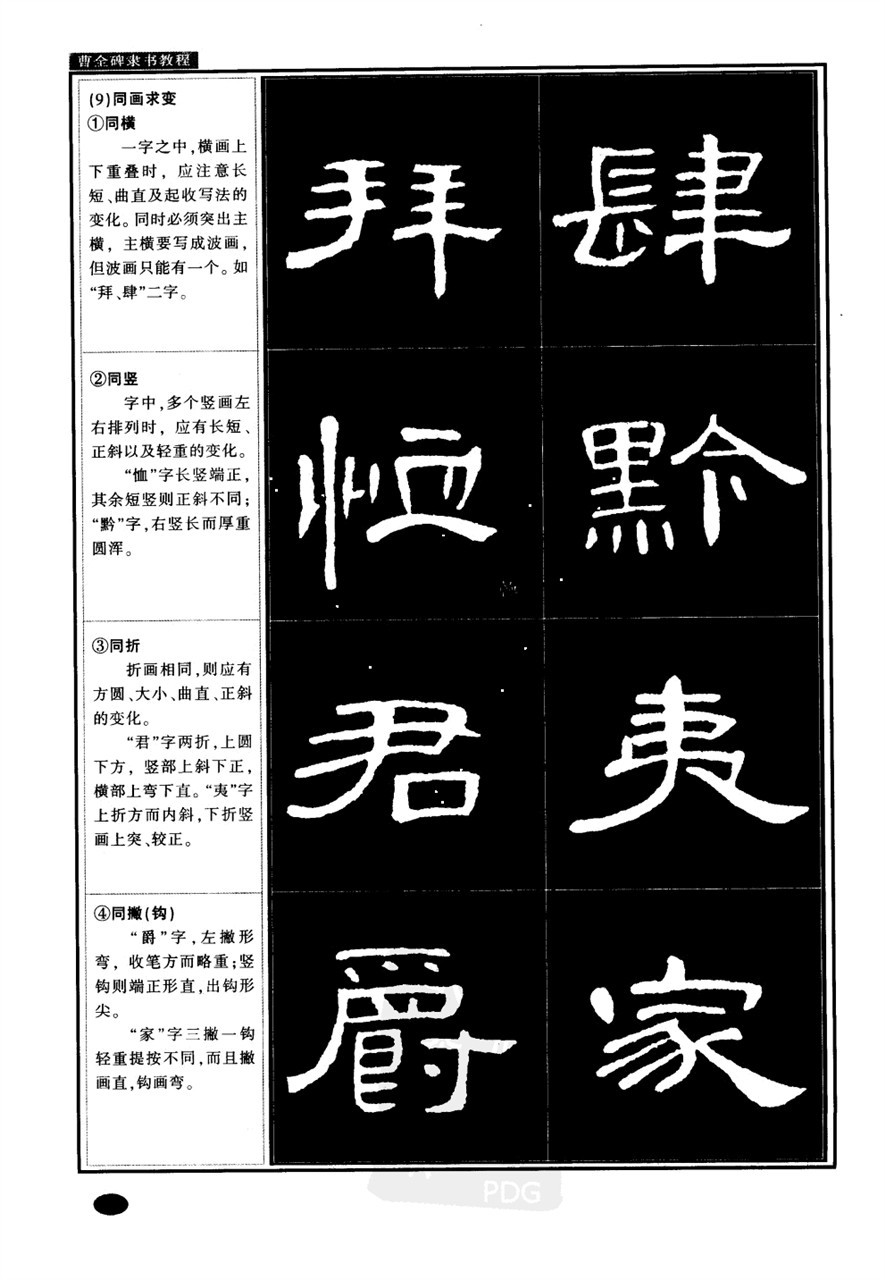 曹全碑隶书教程
(9)同画求变
①同横
一字之中,横画上
下重叠时,应注意长
短、曲直及起收写法的
变化。同时必须突出主
横,主横要写成波画,
但波画只能有一个。如
“拜、肆”二字。
拜 肆
②同竖
字中,多个竖画左
右排列时,应有长短、
正斜以及轻重的变化。
“恤”字长竖端正,
其余短竖则正斜不同;
“黔”字,右竖长而厚重
圆浑。
恤 黔
③同折
折画相同,则应有
方圆、大小、曲直、正斜
的变化。
“君”字两折,上圆
下方,竖部上斜下正,
横部上弯下直。“夷”字
上折方而内斜,下折竖
画上突、较正。
君 夷
④同撇(钩)
“爵”字,左撇形
弯,收笔方而略重;竖
钩则端正形直,出钩形
尖。
“家”字三撇一钩
轻重提按不同,而且撇
画直,钩画弯。
爵 家
PDG